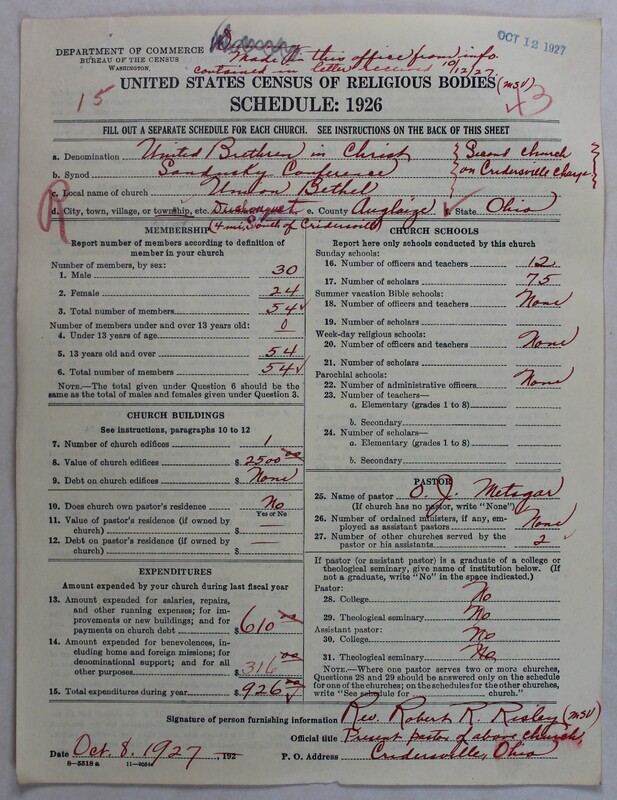 OCT 12 1927
DEPARTMENT OF COMMERCE
BUREAU OF THE CENSUS
WASHINGTON
Made in this office from info.
contained in letter received 10/12/27.
(MSV)
15
43
UNITED STATES CENSUS OF RELIGIOUS BODIES
SCHEDULE: 1926
FILL OUT A SEPARATE SCHEDULE FOR EACH CHURCH. SEE INSTRUCTIONS ON THE BACK OF THIS SHEET
a. Denomination United Brethren in Christ {Second church
b. Synod Sandusky Conference {on Cridersville Charge}
c. Local name of church Union Bethel
R
d. City, town, village, or township, etc. Duchouquet e. County Auglaize f. State Ohio
(4 mi. South of Cridersville)
MEMBERSHIP
Report number of members according to definition of member in your church
Number of members, by sex:
1. Male 30
2. Female 24
3. Total number of members 54
Number of members under and over 13 years old:
4. Under 13 years of age 0
5. 13 years old and over 54
6. Total number of members 54
NOTE.—The total given under Question 6 should be the same as the total of males and females given under Question 3.
CHURCH BUILDINGS
See instructions, paragraphs 10 to 12
7. Number of church edifices 1
8. Value of church edifices $ 2500 00
9. Debt on church edifices $ None
10. Does church own pastor's residence? No
Yes or No
11. Value of pastor's residence (if owned by church) $ —
12. Debt on pastor's residence (if owned by church) $ —
EXPENDITURES
Amount expended by your church during last fiscal year
13. Amount expended for salaries, repairs, and other running expenses; for improvements or new buildings; and for payments on church debt $ 610 00
14. Amount expended for benevolences, including home and foreign missions; for denominational support; and for all other purposes 316 00
15. Total expenditures during year $ 926 00
CHURCH SCHOOLS
Report here only schools conducted by this church
Sunday schools:
16. Number of officers and teachers 12
17. Number of scholars 75
Summer vacation Bible schools:
18. Number of officers and teachers None
19. Number of scholars
Week-day religious schools:
20. Number of officers and teachers None
21. Number of scholars
Parochial schools:
22. Number of administrative officers None
23. Number of teachers—
a. Elementary (grades 1 to 8)
b. Secondary
24. Number of scholars—
a. Elementary (grades 1 to 8)
b. Secondary
PASTOR
25. Name of pastor O. J. Metsgar
(If church has no pastor, write "None")
26. Number of ordained ministers, if any, employed as assistant pastors None
27. Number of other churches served by the pastor or his assistants 2
If pastor (or assistant pastor) is a graduate of a college or theological seminary, give name of institution below. (If not a graduate, write "No" in the space indicated.)
Pastor:
28. College No
29. Theological seminary No
Assistant pastor:
30. College No
31. Theological seminary No
NOTE.—Where one pastor serves two or more churches, Questions 28 and 29 should be answered only on the schedule for one of the churches; on the schedules for the other churches, write "See schedule for ____ church."
Signature of person furnishing information Rev. Robert R. Risley (MSV)
Official title Present pastor of above church
Date Oct. 8, 1927, 192 P. O. Address Cridersville, Ohio
8-5518 a